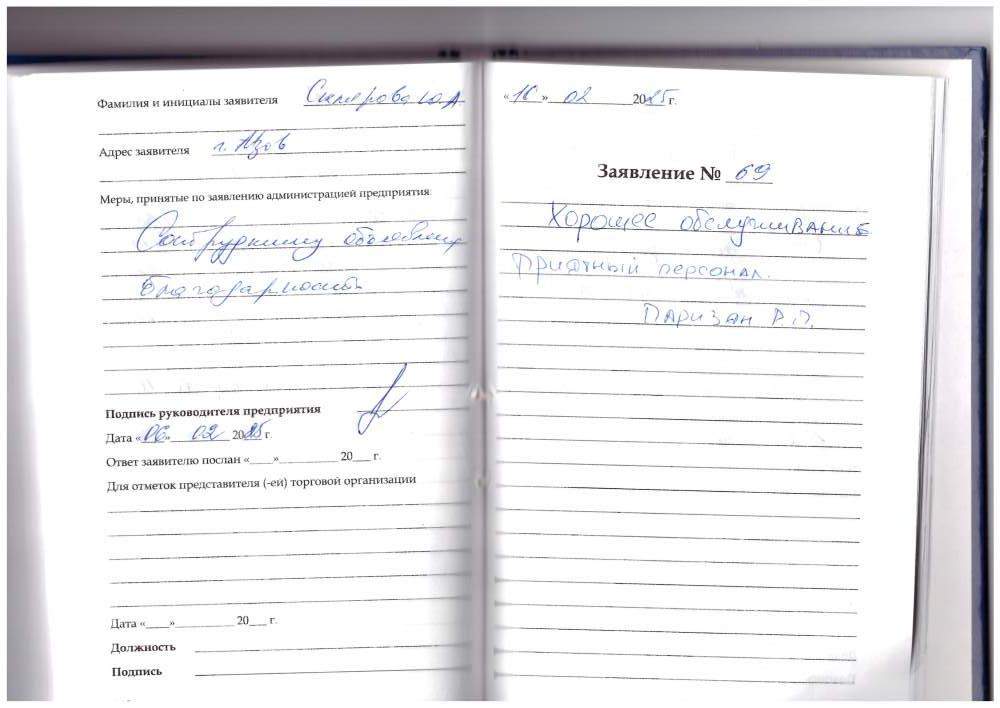 Фамилия и инициалы заявителя Склярова Ю.А
Адрес заявителя г. Азов
Меры, принятые по заявлению администрацией предприятия
Сотруднику объявлена
благодарность
Подпись руководителя предприятия
Дата «06» 02 2025 г.
Ответ заявителю послан «____»__________ 20___ г.
Для отметок представителя (-ей) торговой организации
Дата «____»__________ 20___ г.
Должность
Подпись
«10» 02 2025 г.
Заявление № 69
Хорошее обслуживание
Приятный персонал.
Паризан Р.П.